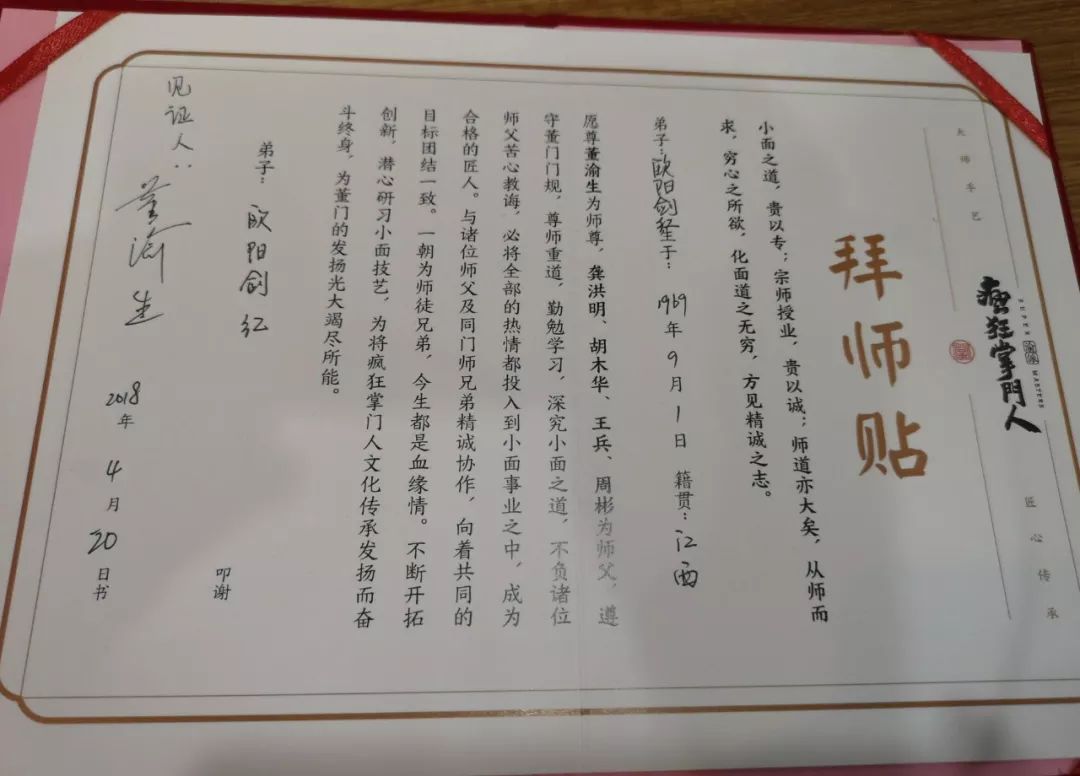 大师手艺
瘋狂掌門人
匠心传承
拜师贴
小面之道，贵以专；宗师授业，贵以诚；师道亦大矣，从师而
求，穷心之所欲，化面道之无穷，方见精诚之志。
弟子：欧阳剑红生于：1969年9月1日 籍贯：江西
愿尊董渝生为师尊，龚洪明、胡木华、王兵、周彬为师父，遵
守董门门规，尊师重道，勤勉学习，深究小面之道，不负诸位
师父苦心教诲，必将全部的热情都投入到小面事业之中，成为
合格的匠人。与诸位师父及同门师兄弟精诚协作，向着共同的
目标团结一致。一朝为师徒兄弟，今生都是血缘情。不断开拓
创新，潜心研习小面技艺，为将疯狂掌门人文化传承发扬而奋
斗终身，为董门的发扬光大竭尽所能。
弟子：欧阳剑红
叩谢
见证人：董渝生
2018年4月20日书